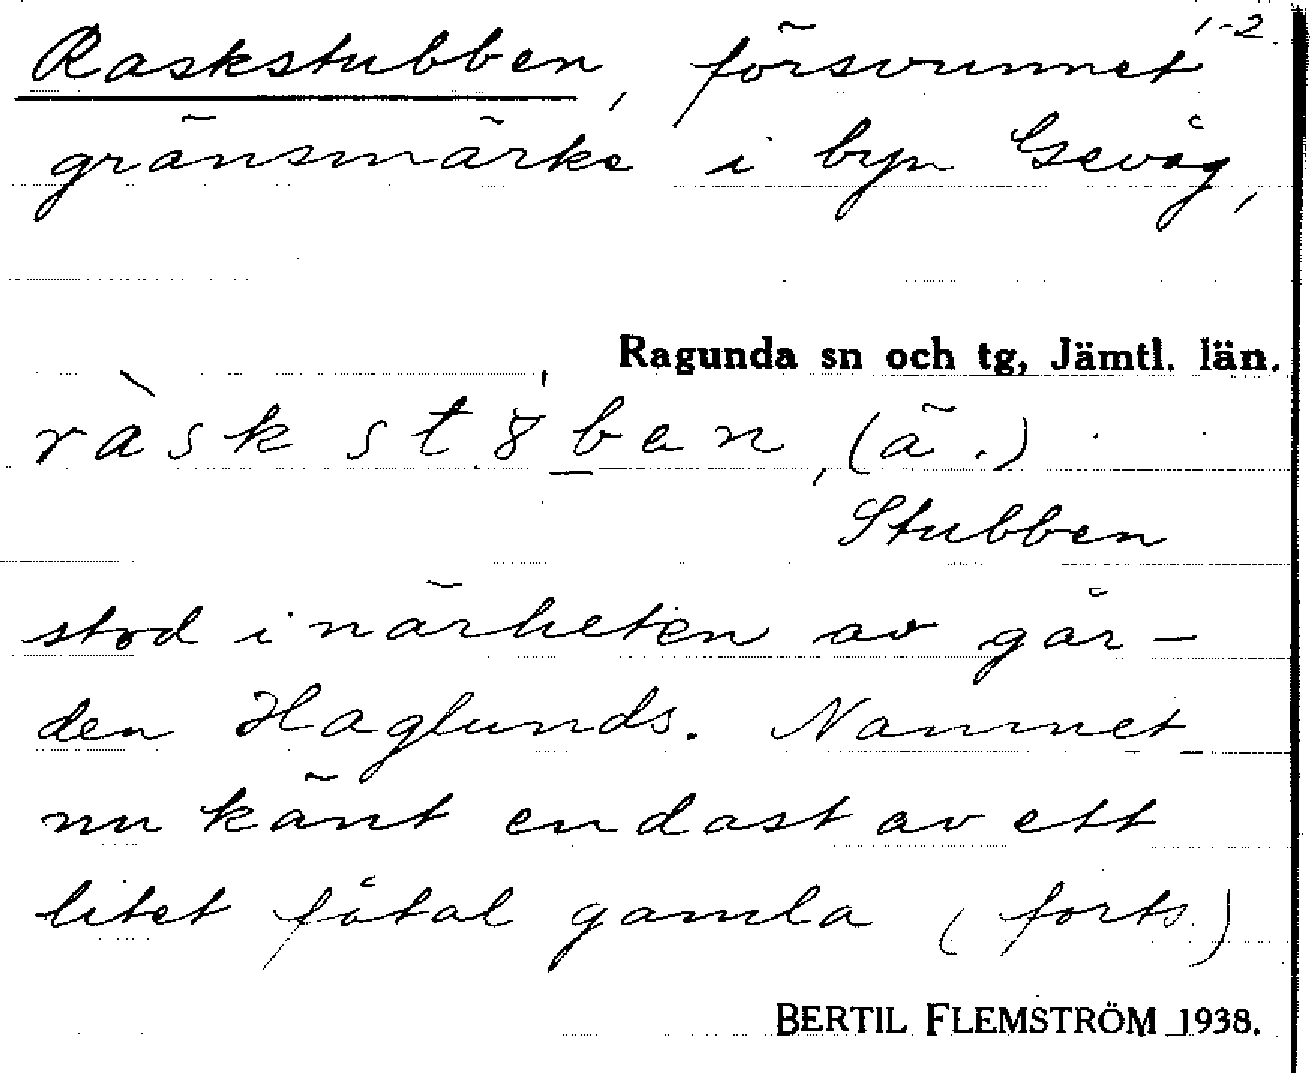 1-2.
Raskstubben, försvunnet
gränsmärke i byn Gevåg,
Ragunda sn och tg, Jämtl. län.
ràskstȣben, (ä.)
Stubben
stod i närheten av går-
den Haglunds. Namnet
nu känt endast av ett
litet fåtal gamla (forts.)
BERTIL FLEMSTRÖM 1938.